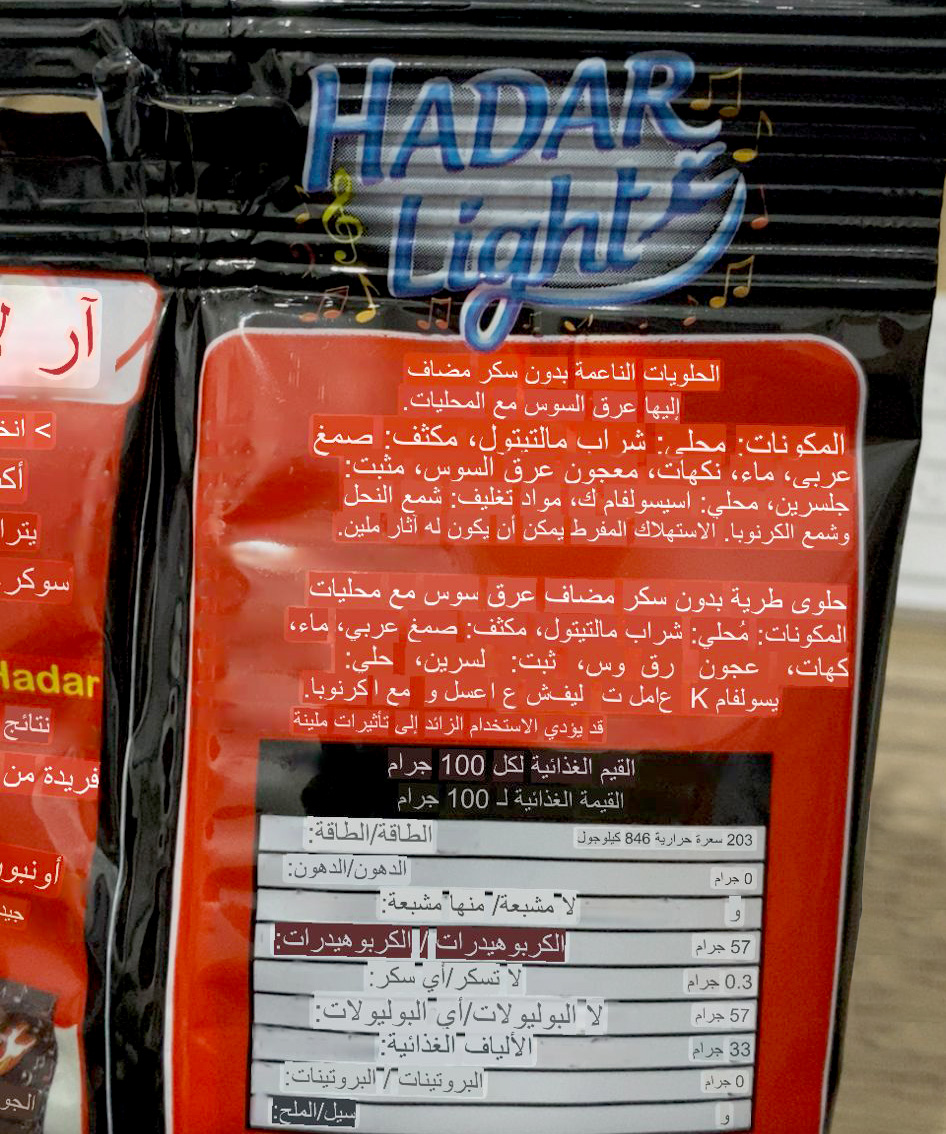 HADAR
Light
الحلويات الناعمة بدون سكر مضاف
إليها عرق السوس مع المحليات.
المكونات: محلي: شراب مالتيتول، مكثف: صمغ
عربي، ماء، نكهات، معجون عرق السوس، مثبت:
جلسرين، محلي: اسيسولفام ك، مواد تغليف: شمع النحل
وشمع الكرنوبا. الاستهلاك المفرط يمكن أن يكون له آثار ملين.
حلوى طرية بدون سكر مضاف عرق سوس مع محليات
المكونات: مُحلي: شراب مالتيتول، مكثف: صمغ عربي، ماء،
كهات، عجون رق وس، ثبت: لسرين، حلي:
يسولفام K عامل ت ليفش ع اعسل و مع اكرنوبا.
قد يؤدي الاستخدام الزائد إلى تأثيرات ملينة
القيم الغذائية لكل 100 جرام
القيمة الغذائية لـ 100 جرام
الطاقة/الطاقة: 203 سعرة حرارية 846 كيلوجول
الدهون/الدهون: 0 جرام
لا مشبعة/ منها مشبعة: و
الكربوهيدرات / الكربوهيدرات: 57 جرام
لا تسكر/أي سكر: 0.3 جرام
لا البوليولات/أي البوليولات: 57 جرام
الألياف الغذائية: 33 جرام
البروتينات / البروتينات: 0 جرام
سيل/الملح: و
آر
> انخ
أكث
يترا
سوكر.
Hadar
نتائج
فريدة من
أونبور
جيد
الجو